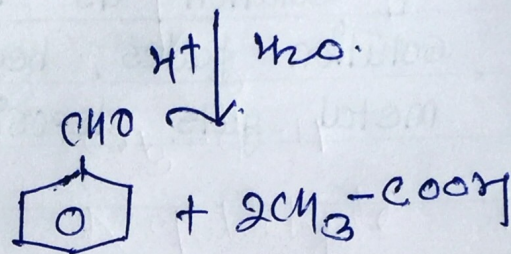 H+ H2O.
CHO
+ 2CH3-COOH